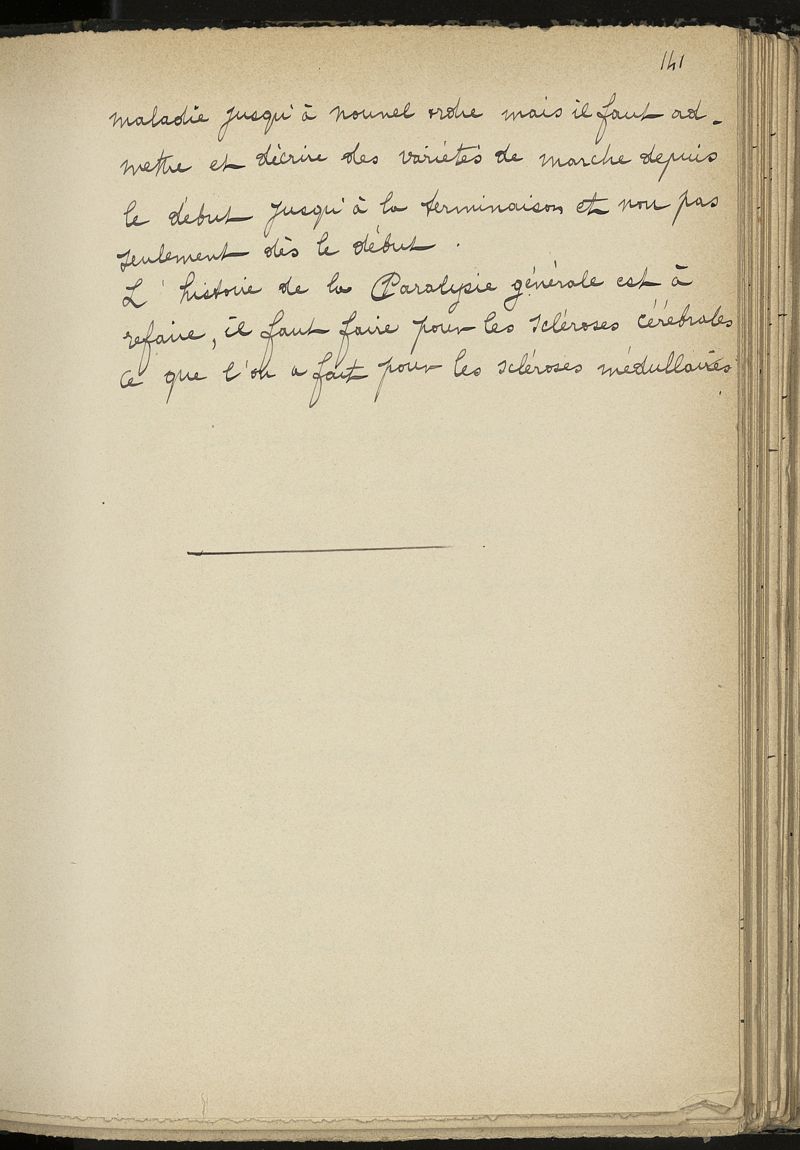 141
maladie jusqu'à nouvel ordre mais il faut ad-
mettre et décrire des variétés de marche depuis
le début jusqu'à la terminaison et non pas
seulement dès le début.
L'histoire de la Paralysie générale est à
refaire, il faut faire pour les scléroses cérébrales
ce que l'on a fait pour les scléroses médullaires